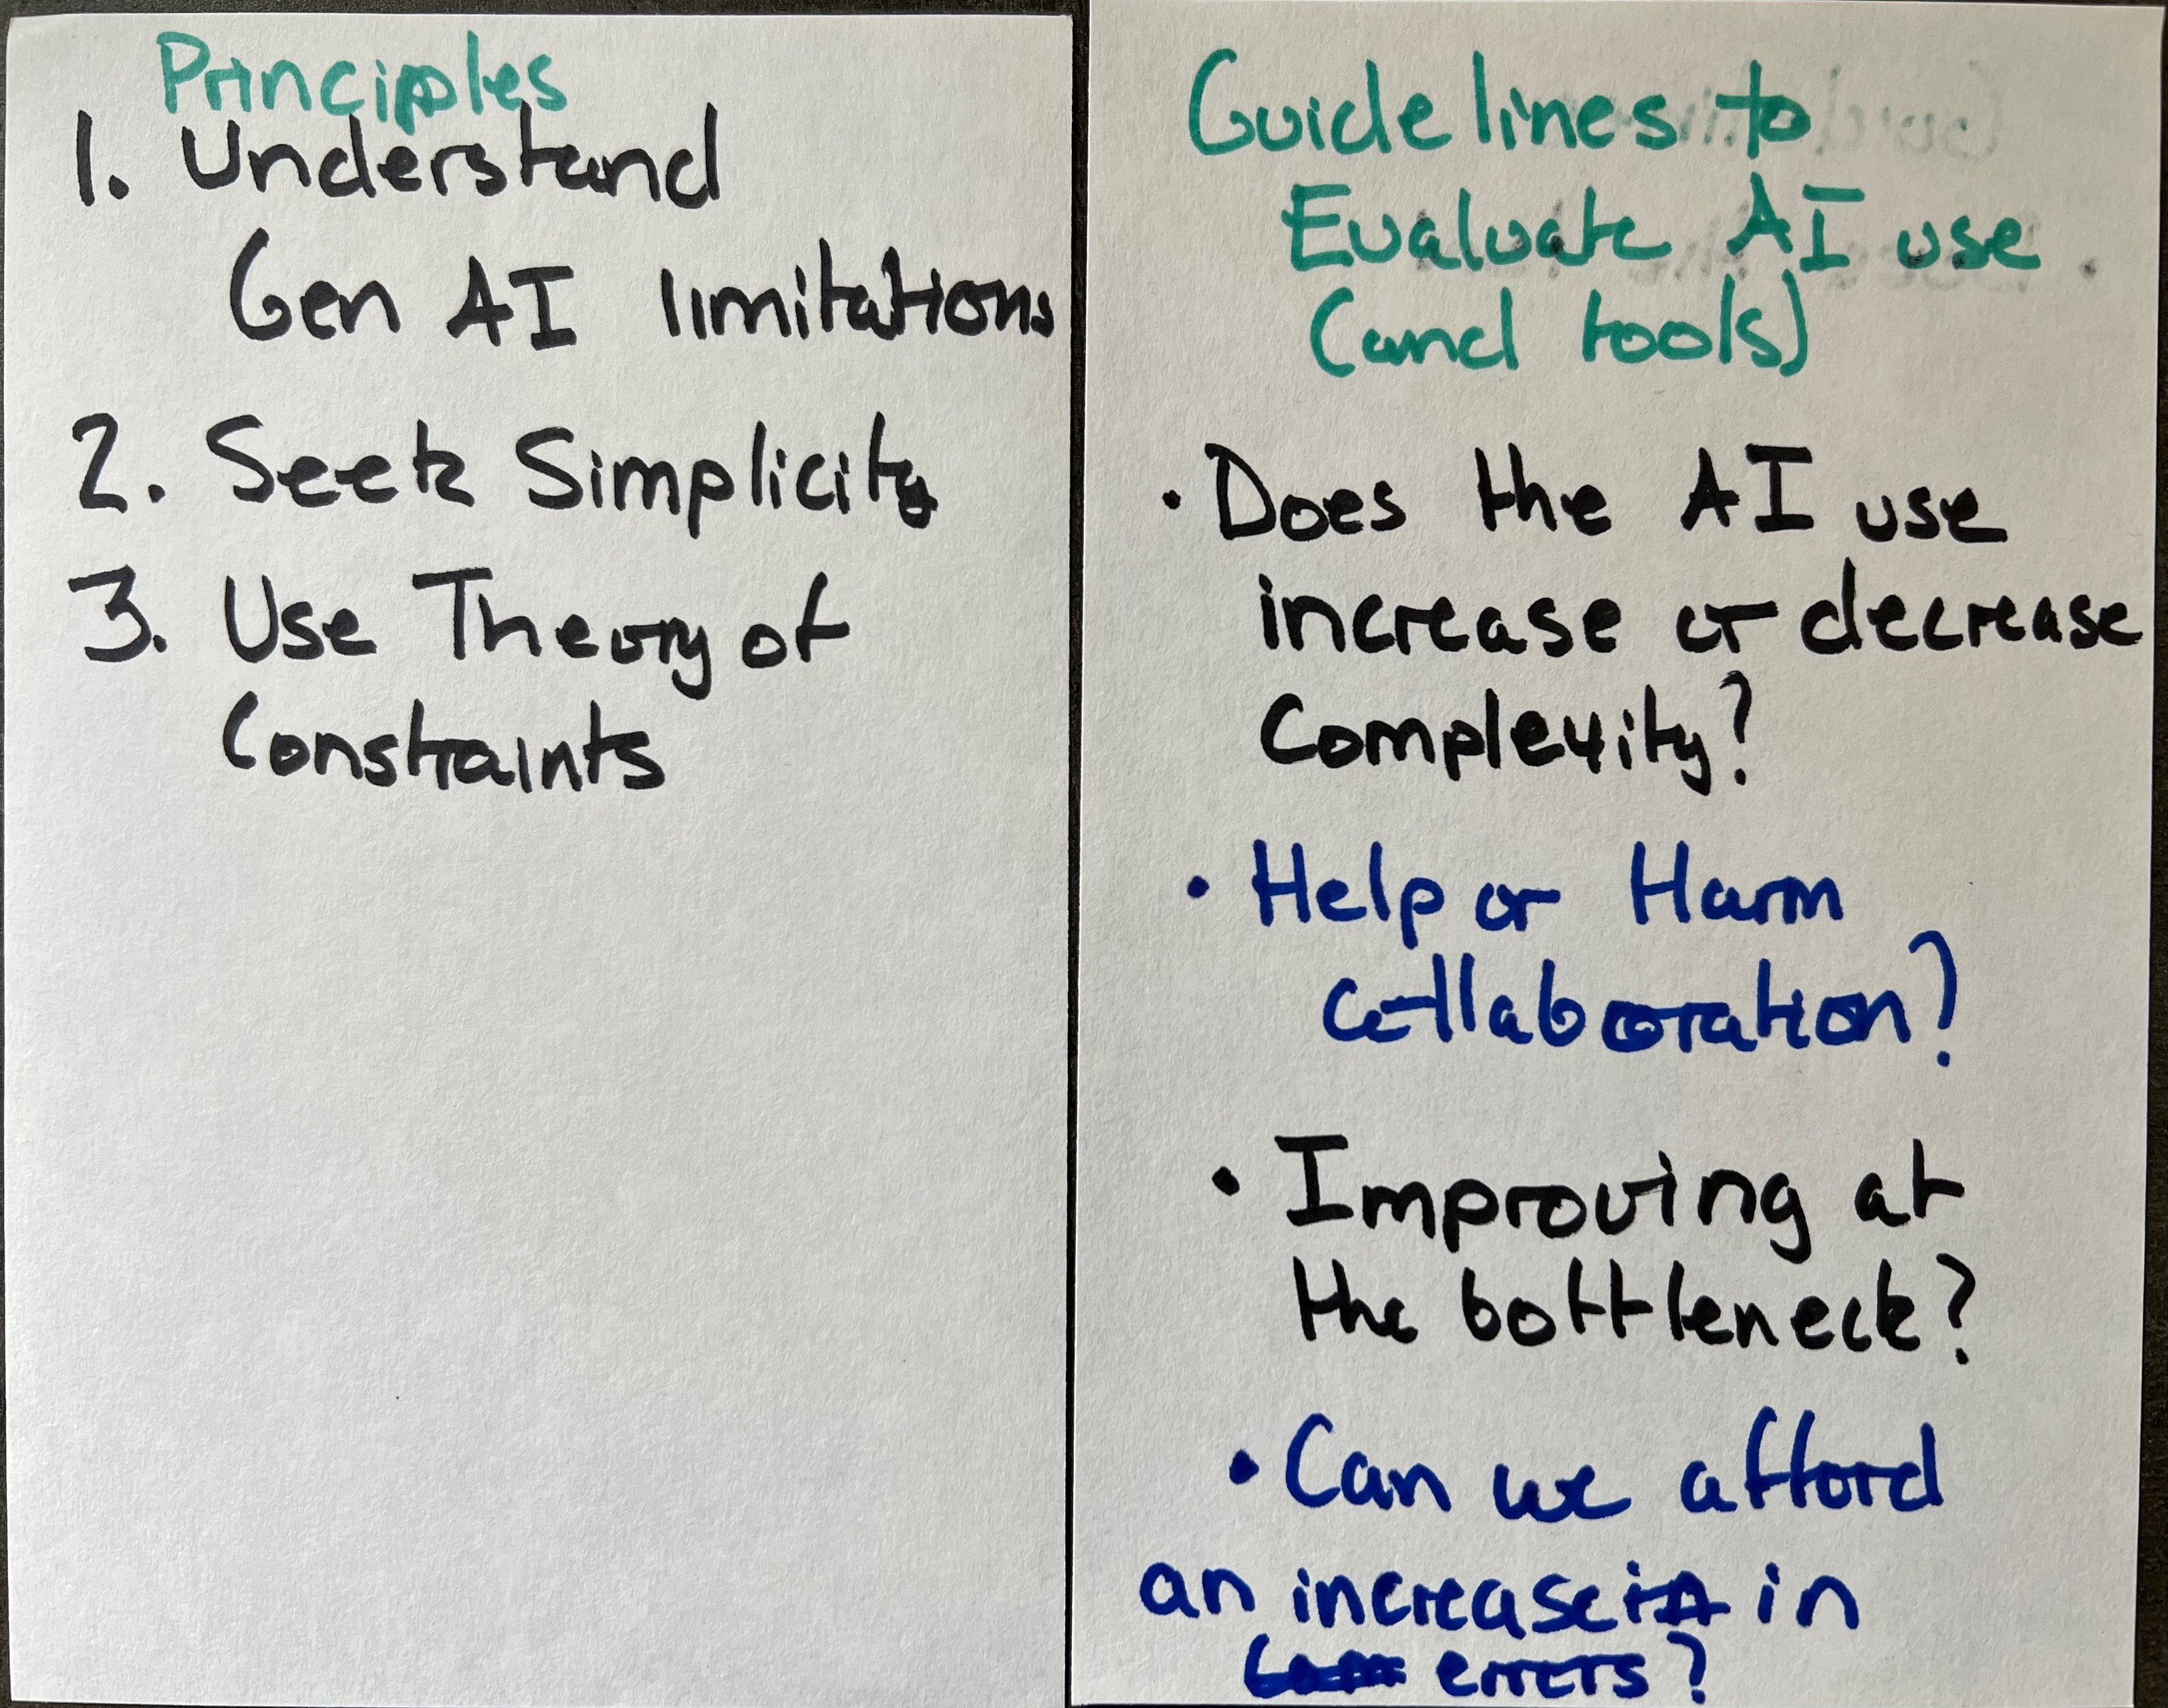 Principles
1. Understand
Gen AI limitations
2. Seek Simplicity
3. Use Theory of
Constraints
Guidelines to
Evaluate AI use
(and tools)
• Does the AI use
increase or decrease
Complexity?
• Help or Harm
collaboration?
• Improving at
the bottleneck?
• Can we afford
an increase in
errors?